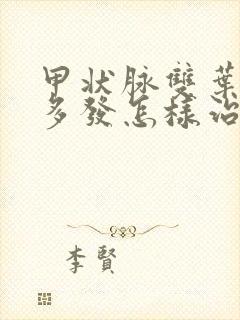 甲状脉雙葉
多發怎樣治
李賢